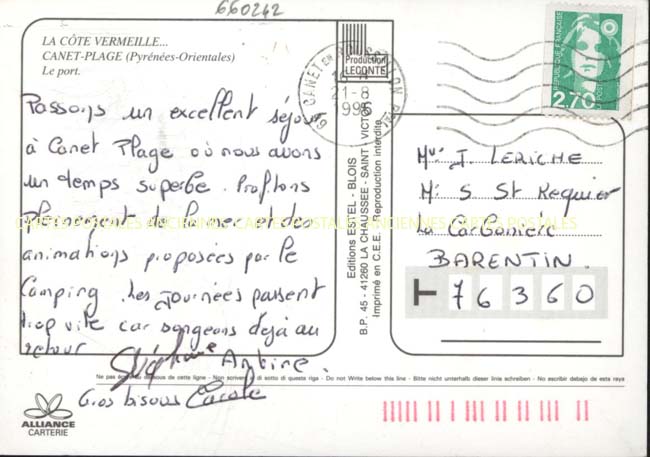 660242
LA CÔTE VERMEILLE...
CANET-PLAGE (Pyrénées-Orientales)
Le port.
Production
LECONTE
CANET EN ROUSSILLON
21-8
1995
REPUBLIQUE FRANÇAISE
2,70
POSTES
Passons un excellent séjour
à Canet Plage où nous avons
un temps superbe. Profitons
pleinement de la mer et des
animations proposées par le
Camping. Les Journées passent
trop vite car songeons déjà au
retour
Stéphane Antoine.
Gros bisous Carole
CARTES POSTALES ANCIENNES CARTES POSTALES ANCIENNES CARTES POSTALES
Editions ESTEL - BLOIS
B.P. 45 - 41260 LA CHAUSSEE - SAINT - VICTOR
Imprimé en C.E.E. - Reproduction interdite
J. LERICHE
S St Requier
La Carbonière
BARENTIN.
76360
Ne pas écrire au dessous de cette ligne - Non scrivere di sotto di questa riga - Do not Write below this line - Bitte nicht unterhalb dieser linie schreiben - No escribir debajo de esta raya
ALLIANCE
CARTERIE